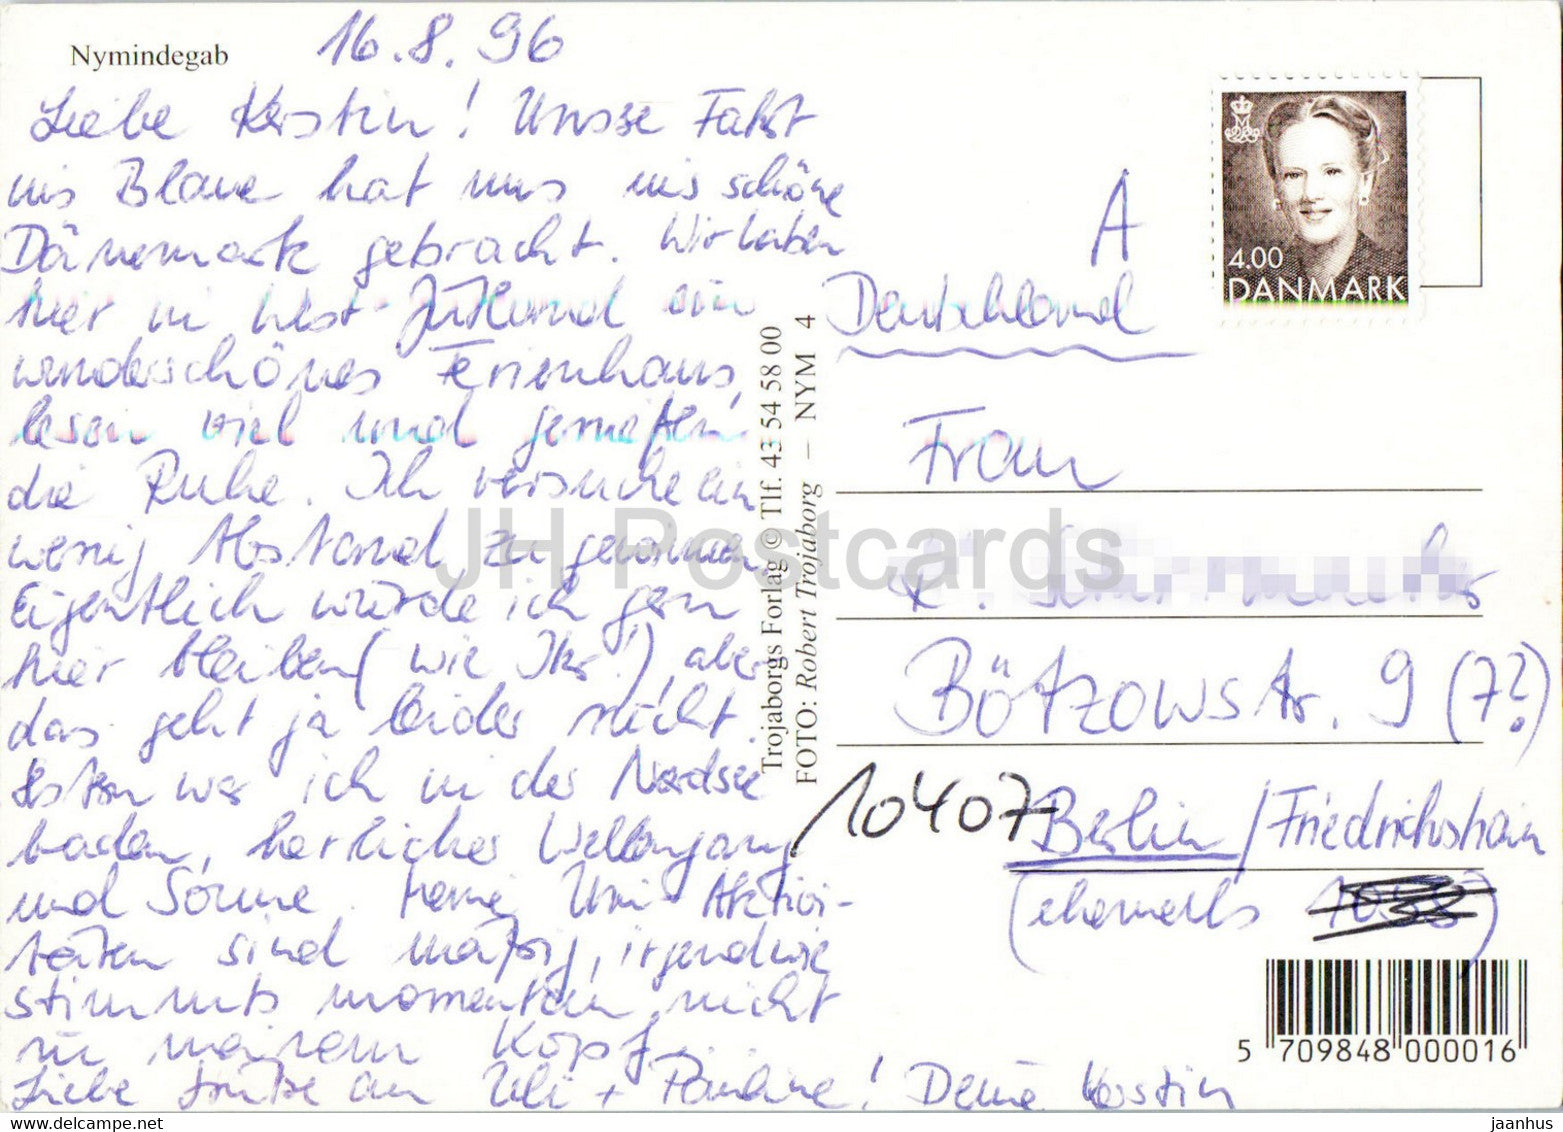 Nymindegab
16.8.96
Liebe Kerstin! Unsere Fahrt
ins Blaue hat uns ins schöne
Dänemark gebracht. Wir haben
hier in West-Jütland ein
wunderschönes Ferienhaus,
lesen viel und genießen
die Ruhe. Ich versuche ein
wenig Abstand zu gewinnen.
Eigentlich würde ich gern
hier bleiben (wie Ihr!), aber
das geht ja leider nicht.
Gestern war ich in der Nordsee
baden, herrlicher Wellengang
und Sonne. Meine Uni-Aktivi-
täten sind mäßig, irgendwie
stimmts momentan nicht
in meinem Kopf.
Liebe Grüße an Uli + Pauline! Deine Kerstin
Trojaborgs Forlag © Tlf. 43 54 58 00
FOTO: Robert Trojaborg – NYM 4
A
4.00
DANMARK
Deutschland
Frau
K.
Bötzowstr. 9 (7?)
10407 Berlin/Friedrichshain
(ehemals 1055)
5 709848 000016
JH Postcards
www.delcampe.net
jaanhus